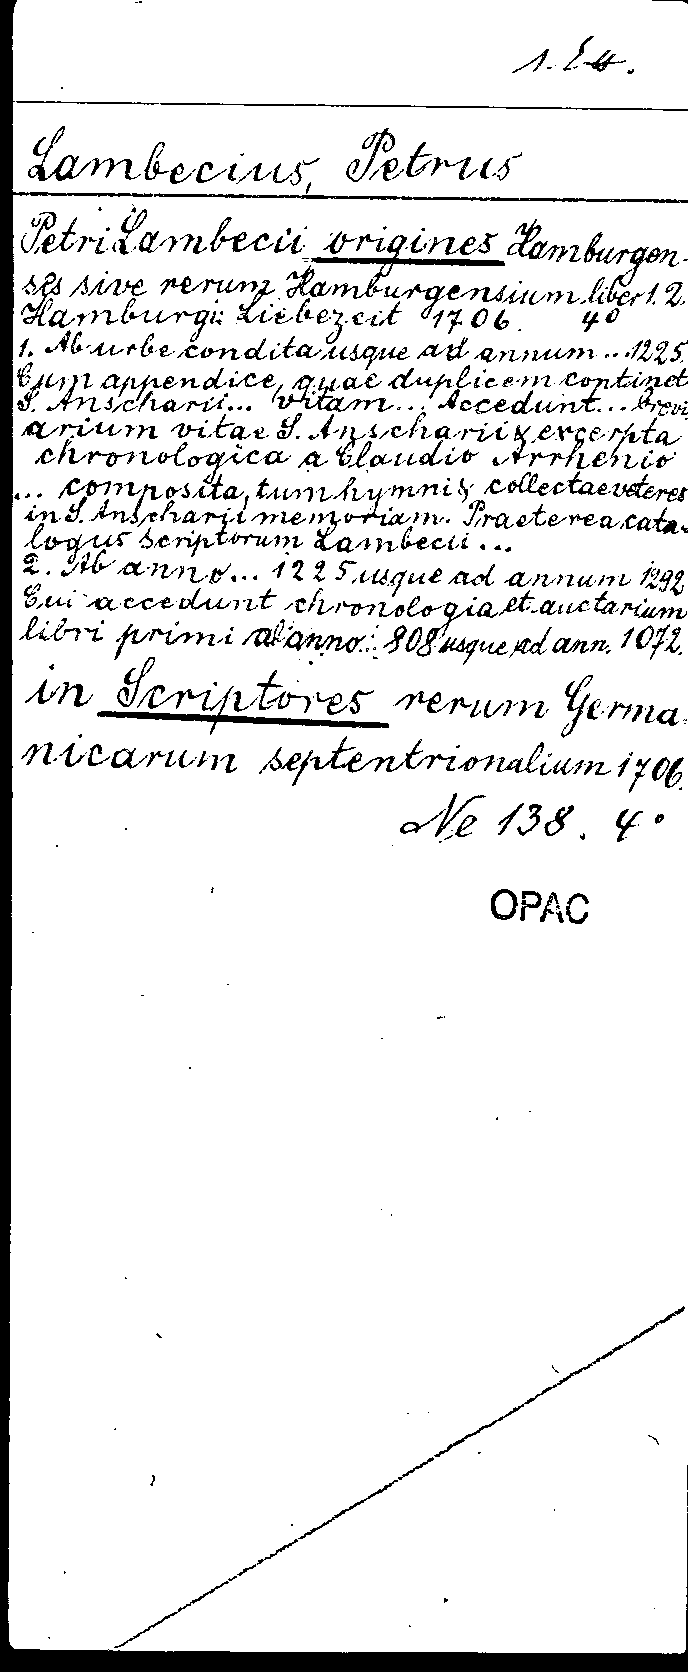 1. Ex.
Lambecius, Petrus
Petri Lambecii origines Hamburgen-
ses sive rerum Hamburgensium liber 1. 2.
Hamburgi: Liebezeit 1706. 4°
1. Ab urbe condita usque ad annum ... 1225.
Cum appendice, quae duplicem continet
S. Anscharii ... vitam ... Accedunt ... brevi
arium vitae S. Anscharii & excerpta
chronologica a Claudio Arrhenio
... composita, tum hymni & collectae veteres
in S. Anscharii memoriam. Praeterea cata-
logus scriptorum Lambecii ...
2. Ab anno ... 1225 usque ad annum 1292
Cui accedunt chronologia et auctarium
libri primi ab anno 808 usque ad ann. 1072.
in Scriptores rerum Germa-
nicarum septentrionalium 1706.
Ne 138. 4°
OPAC